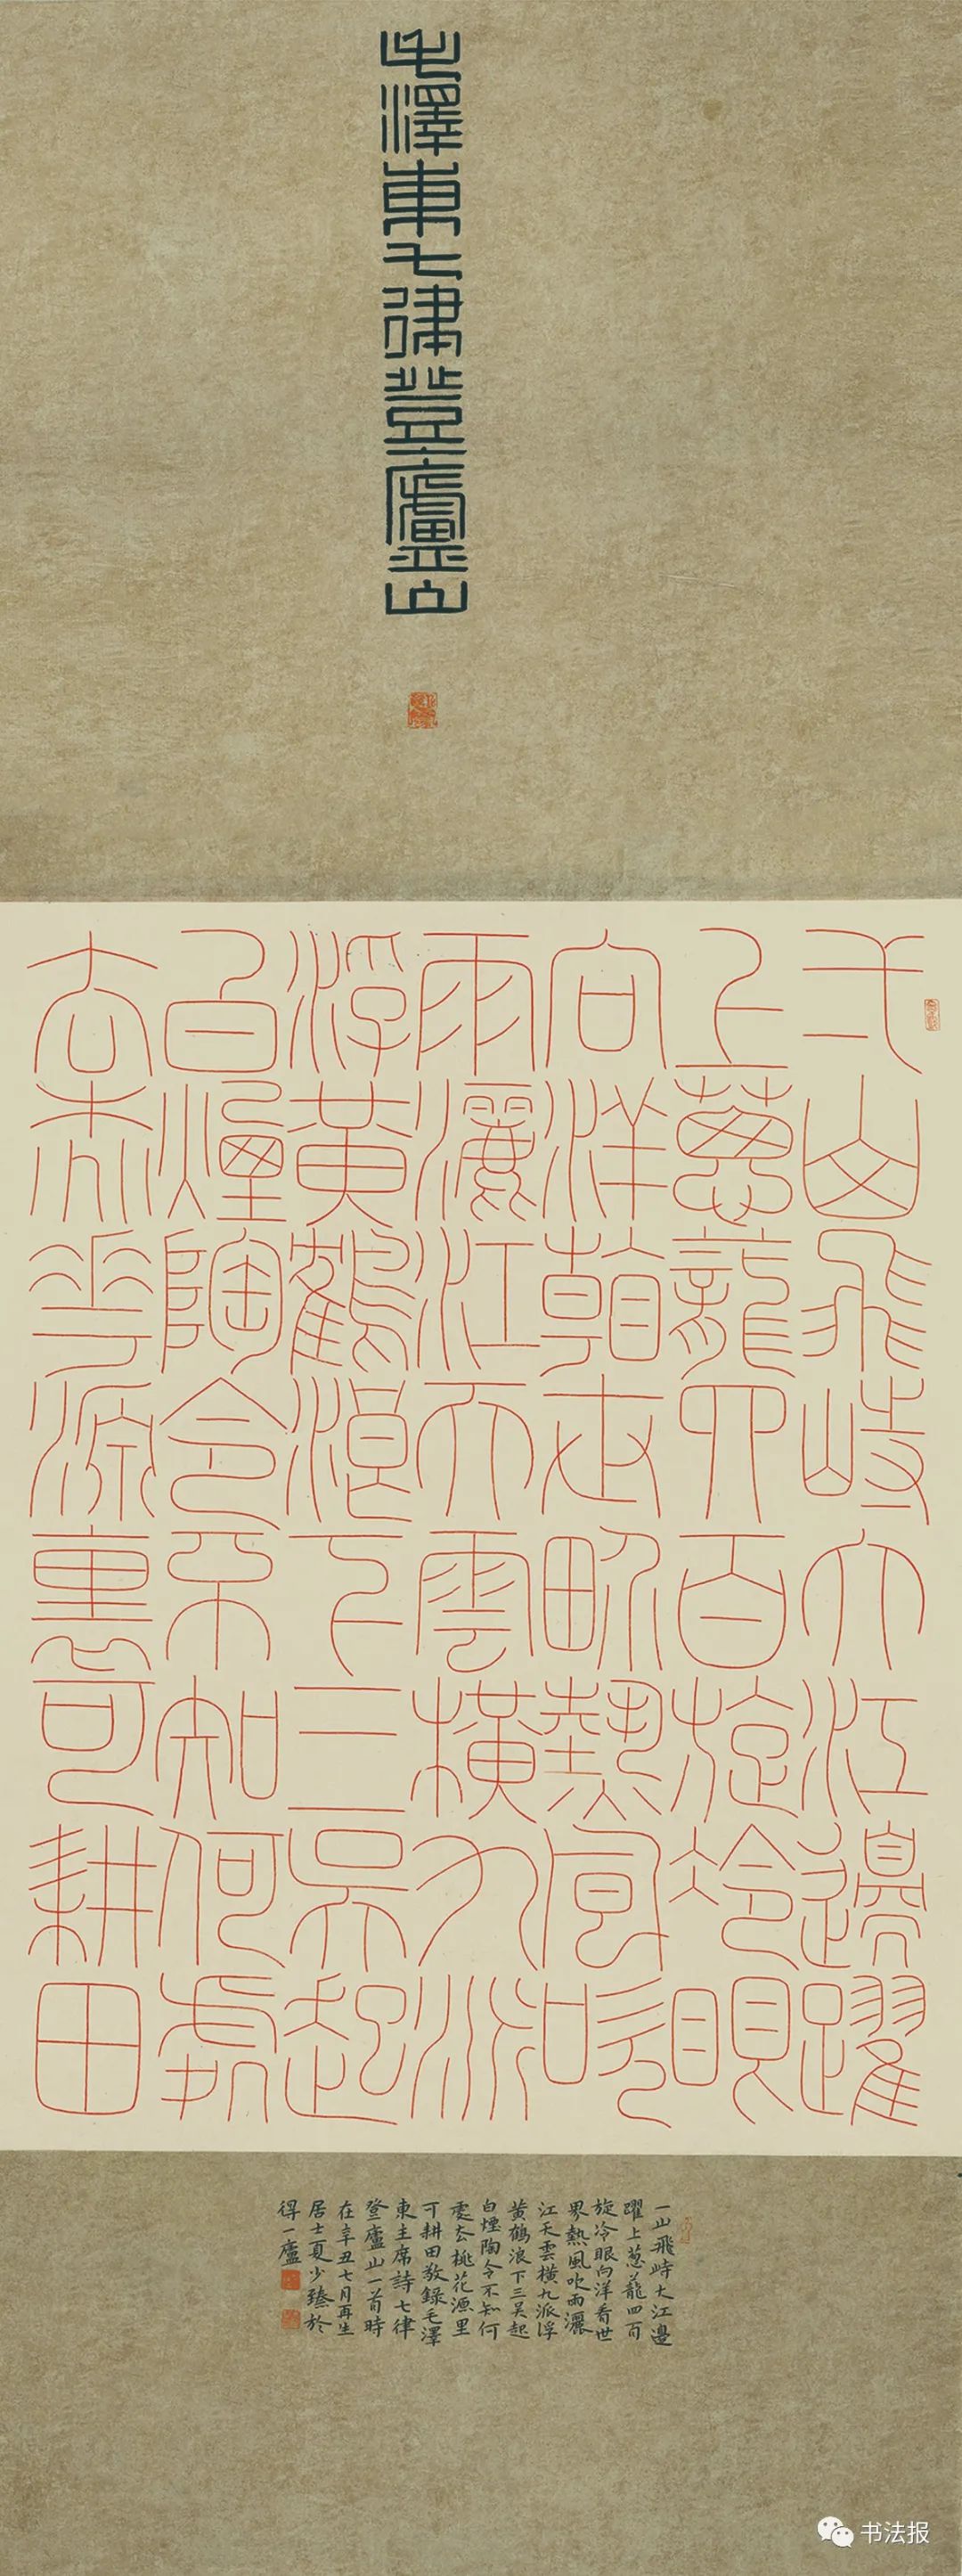 毛澤東七律登廬山
弌山飛峙大江邊躍
上葱蘢四百旋冷眼
向洋看世界熱風吹
雨灑江天雲橫九派
浮黃鶴浪下三吳起
白煙陶令不知何處
去桃花源裏可耕田
一山飛峙大江邊
躍上葱蘢四百
旋冷眼向洋看世
界熱風吹雨灑
江天雲橫九派浮
黄鶴浪下三吴起
白煙陶令不知何
處去桃花源里
可耕田敬録毛澤
東主席詩七律
登廬山一首時
在辛丑七月再生
居士夏少臻於
得一廬
书法报